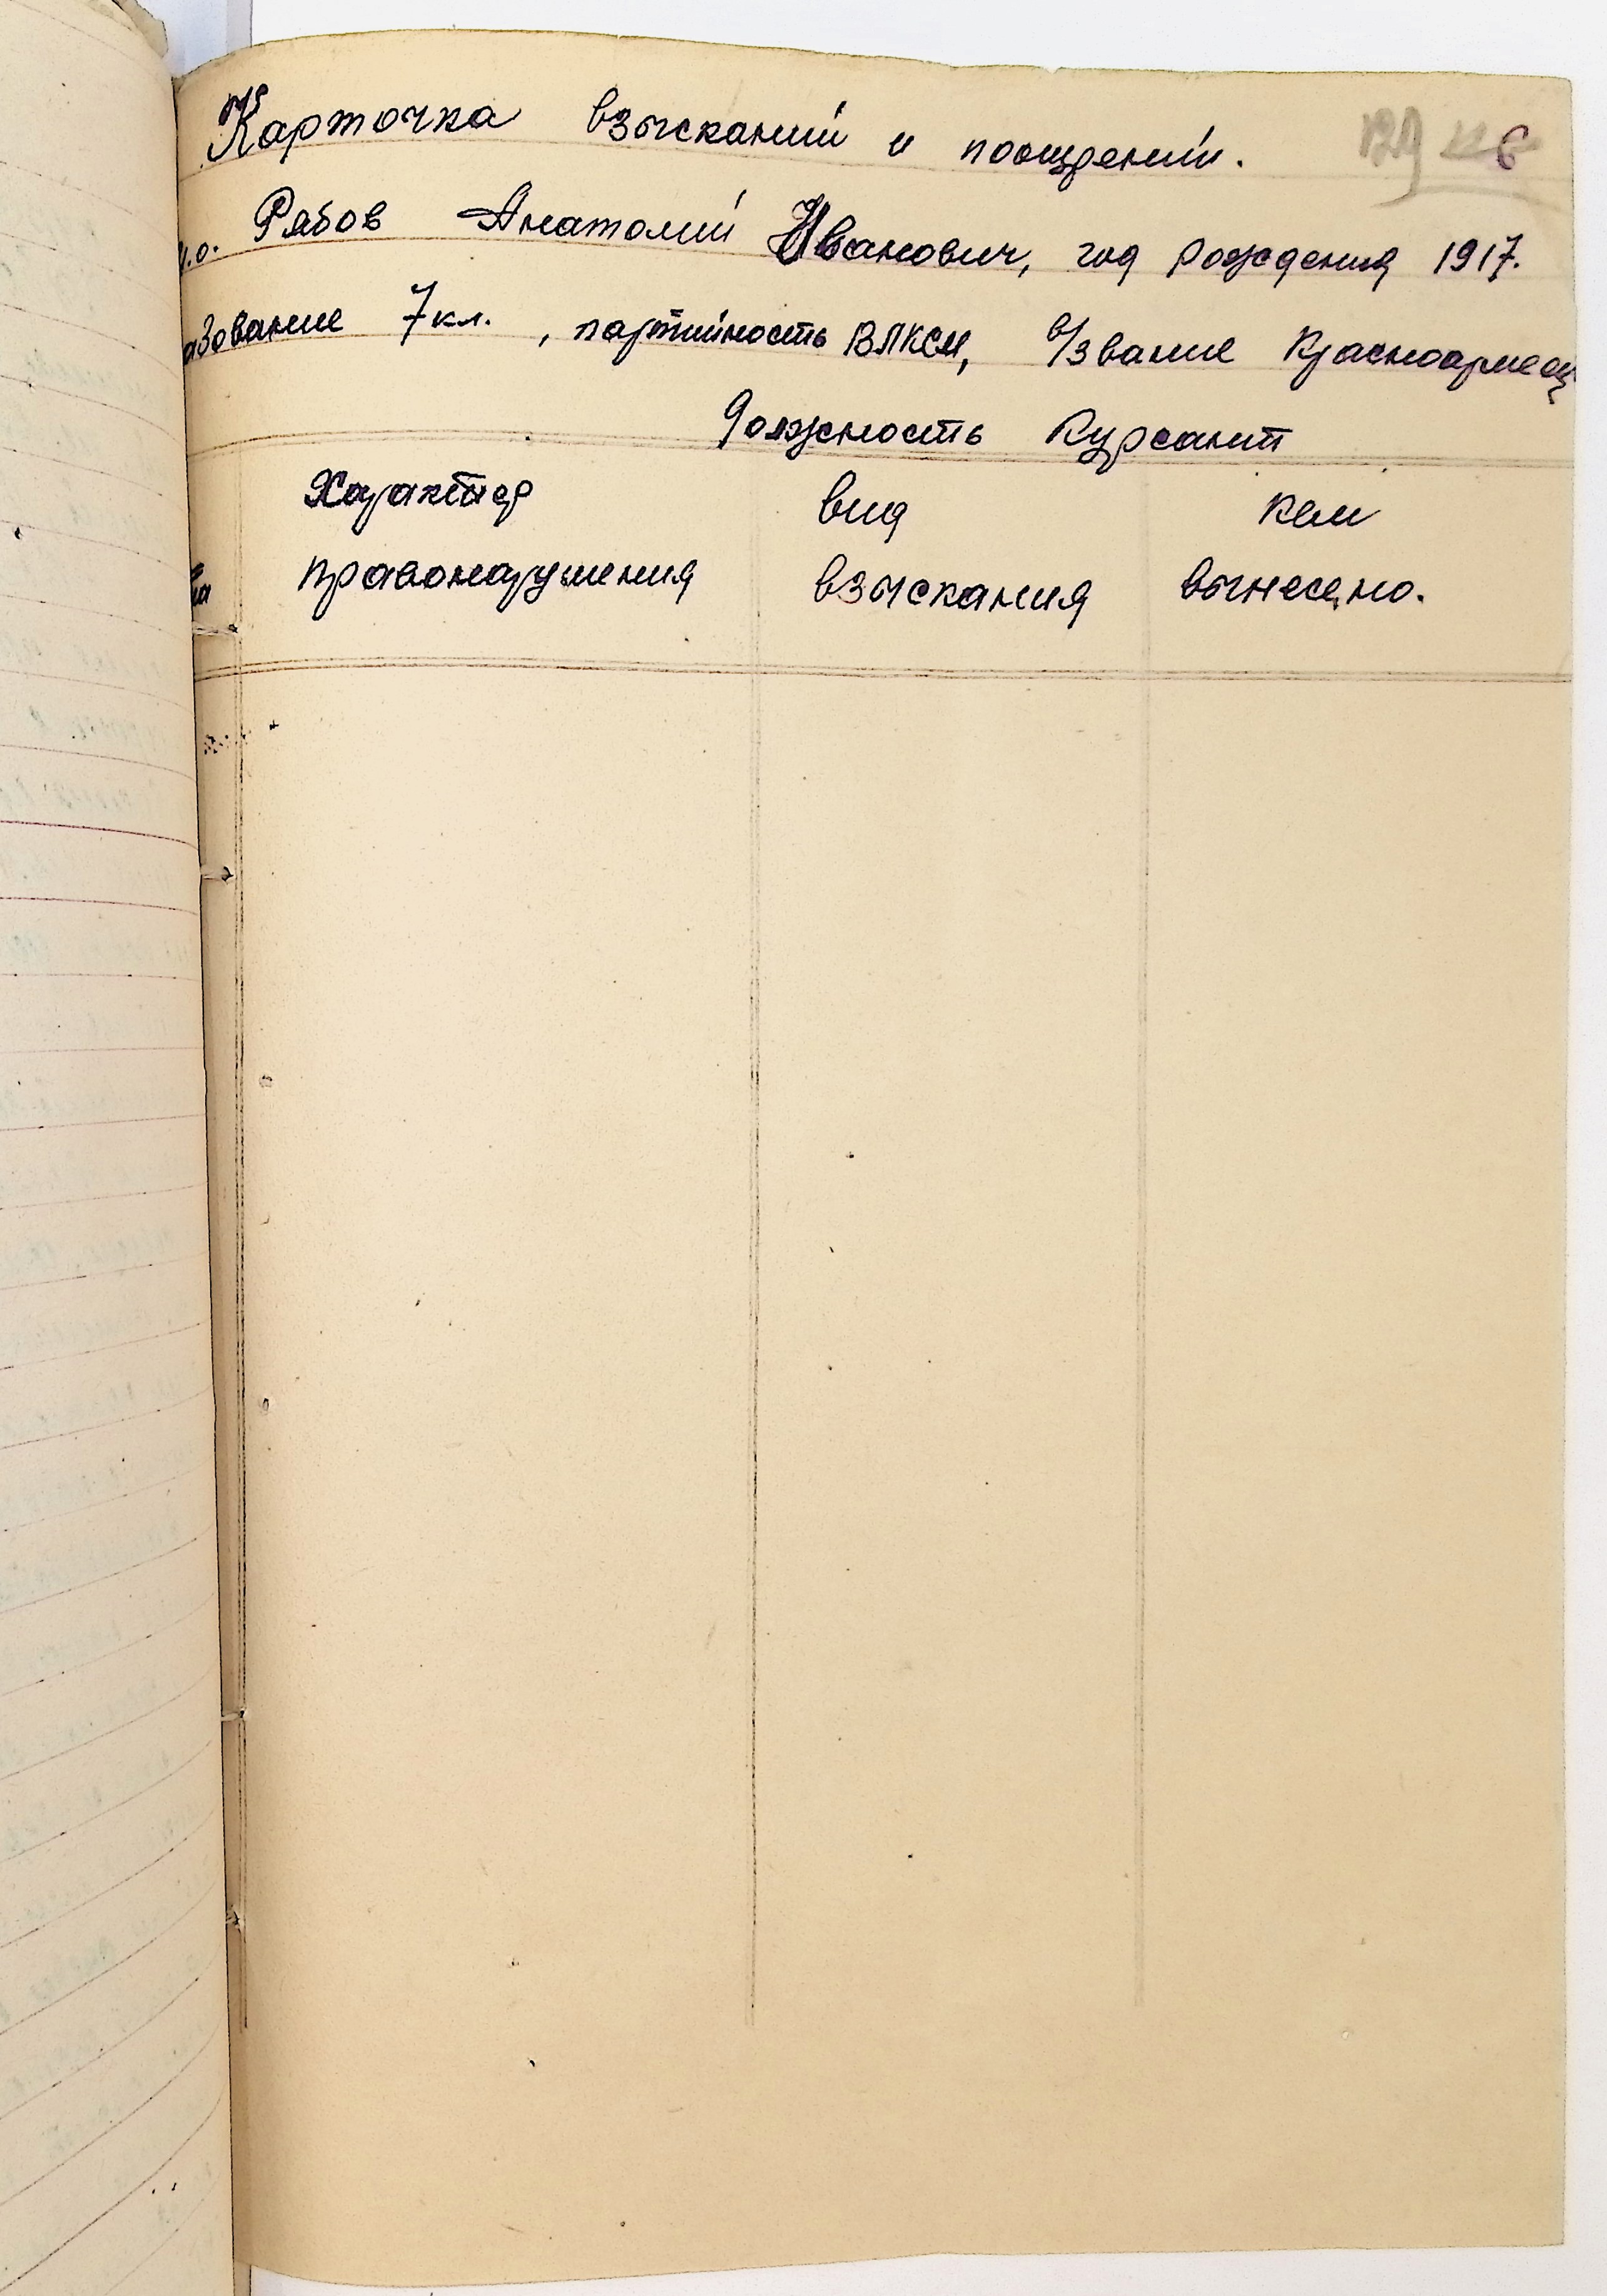 Карточка взысканий и поощрений.
и.о. Рябов Анатолий Иванович, год рождения 1917.
азование 7 кл., партийность ВЛКСМ, в/звание Красноармеец
Должность Курсант
Характер вид кем
правонарушения взыскания вынесено.